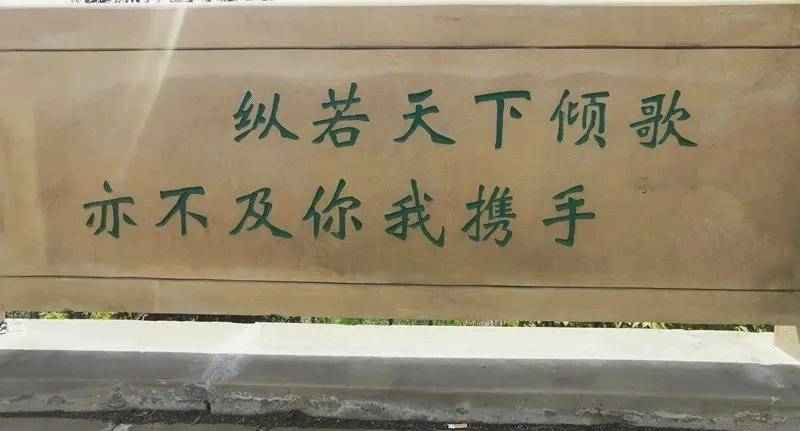 纵若天下倾歌
亦不及你我携手